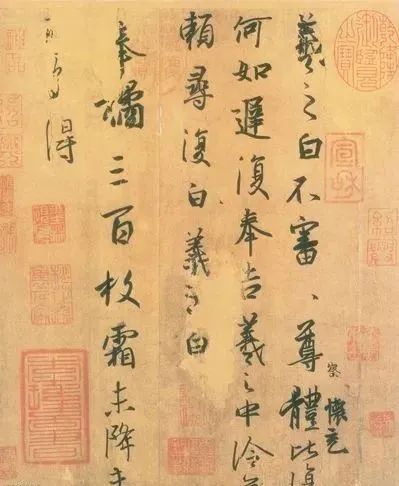 羲之白不審、尊體比復
察
懷充
何如遲復奉告羲之中冷無
賴尋復白羲之白
奉橘三百枚霜未降未
可多得
宣和